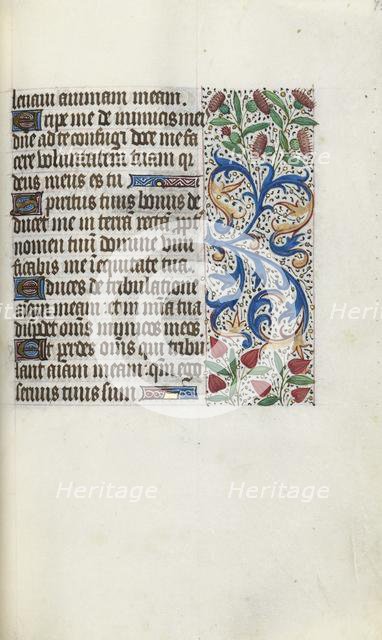 levavi animam meam.
Eripe me de inimicis meis
dñe ad te confugi doce me fa
cere voluntatem tuam qr
deus meus es tu
Spiritus tuus bonus de
ducet me in terra recta ppt
nomen tuū domine vivi
ficabis me ī equitate tua.
Educes de tribulatione
aīam meam: et in mīa tua
disꝑdes oms inimicos meos
Et perdes oms qui tribu
lant aīam meam: qm ego
servus tuus sum
Heritage
Heritage
Heritage
Heritage